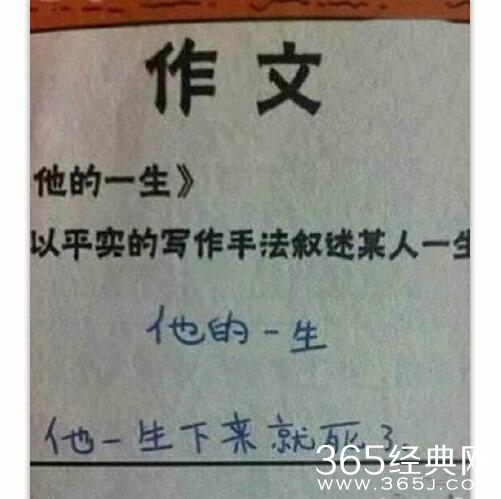 作文
他的一生》
以平实的写作手法叙述某人一生
他的一生
他一生下来就死了
365经典网
www.365j.com